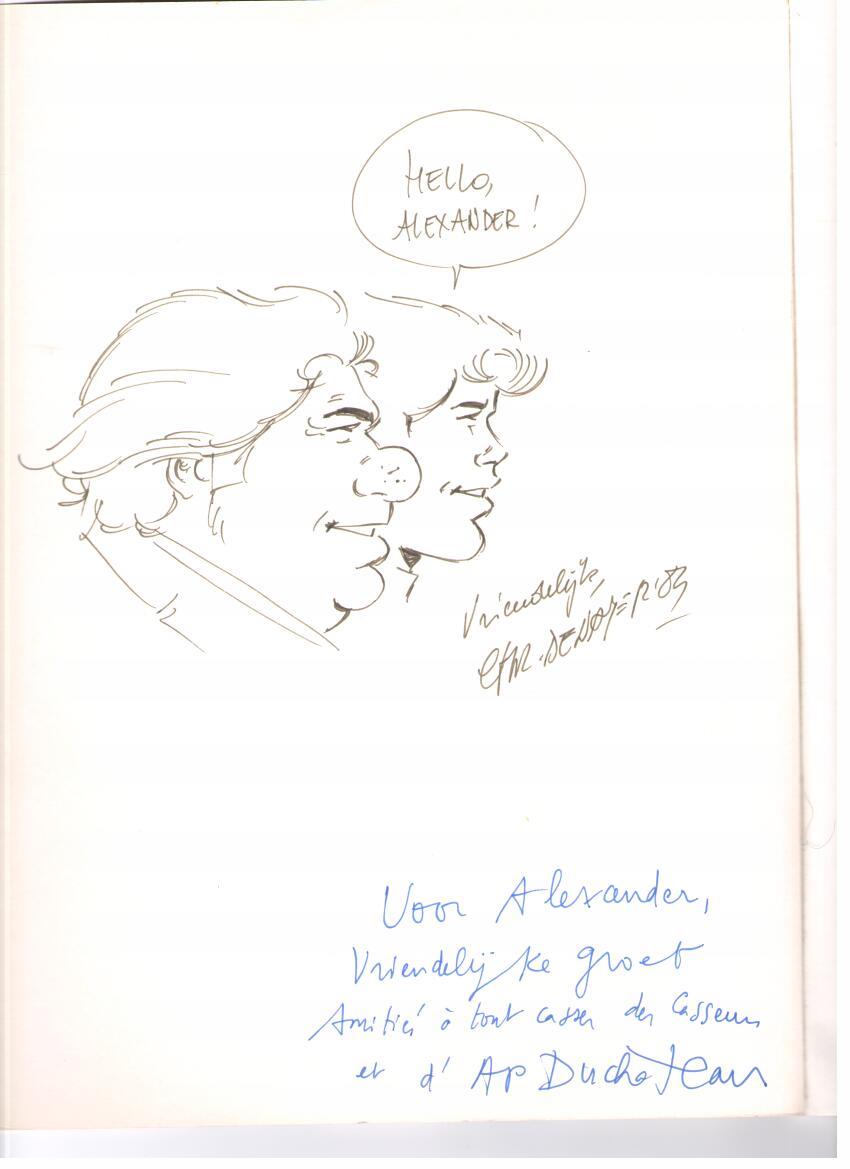 HELLO,
ALEXANDER!
Vriendelijk,
CHR. DENAYER '83
Voor Alexander,
Vriendelijke groet
Amitiés à tout casser des Casseurs
et d' AP Duchâteau